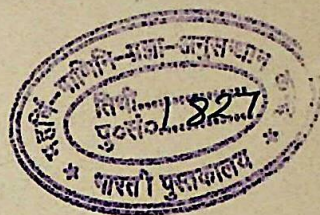 महर्षि-पाणिनि-प्रज्ञा-अनुसन्धान
तिथी..............
पु०सं० 1827
* भारती पुस्तकालय *